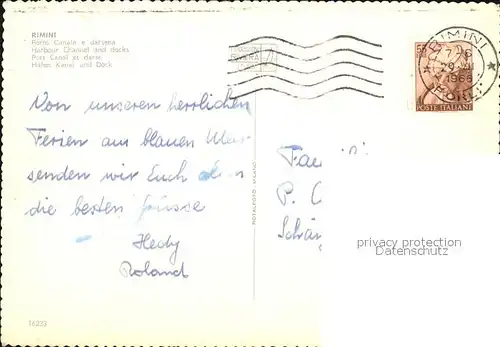 RIMINI
Porto Canale e darsena
Harbour Channel and docks
Port Canal et darse
Hafen Kanal und Dock
RIMINI
1966
POSTE ITALIANE
Von unseren herrlichen
Ferien am blauen Meer
senden wir Euch allen
die besten Grüsse
Hedy
Roland
Fa
P. C
Schä
privacy protection
Datenschutz
16223